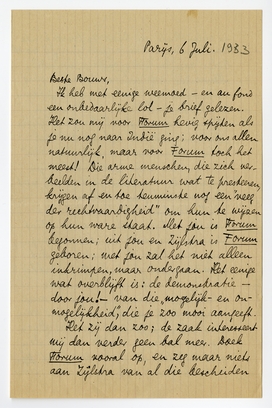 Parijs, 6 Juli. 1933
Beste Bouws,
Ik heb met eenige weemoed – en au fond
een onbedaarlijke lol – je brief gelezen.
Het zou mij voor Forum hevig spijten als
je nu nog naar Indië ging; voor ons allen
natuurlijk, maar voor Forum toch het
meest! Die arme menschen, die zich ver-
beelden in de literatuur wat te presteeren,
krijgen af en toe tenminste nog een "veeg
der rechtvaardigheid" om hun te wijzen
op hun ware staat. Met jou is Forum
begonnen; uit jou en Zijlstra is Forum
geboren; met jou zal het niet alleen
inkrimpen, maar ondergaan. Het eenige
wat overblijft is: de demonstratie –
door jou! – van die "mogelijk- en on-
mogelijkheid", die je zoo mooi aangeeft.
Het zij dan zoo; de zaak interesseert
mij dan verder geen bal meer. Doek
Forum vooral op, en zeg maar niets
aan Zijlstra van al die bescheiden